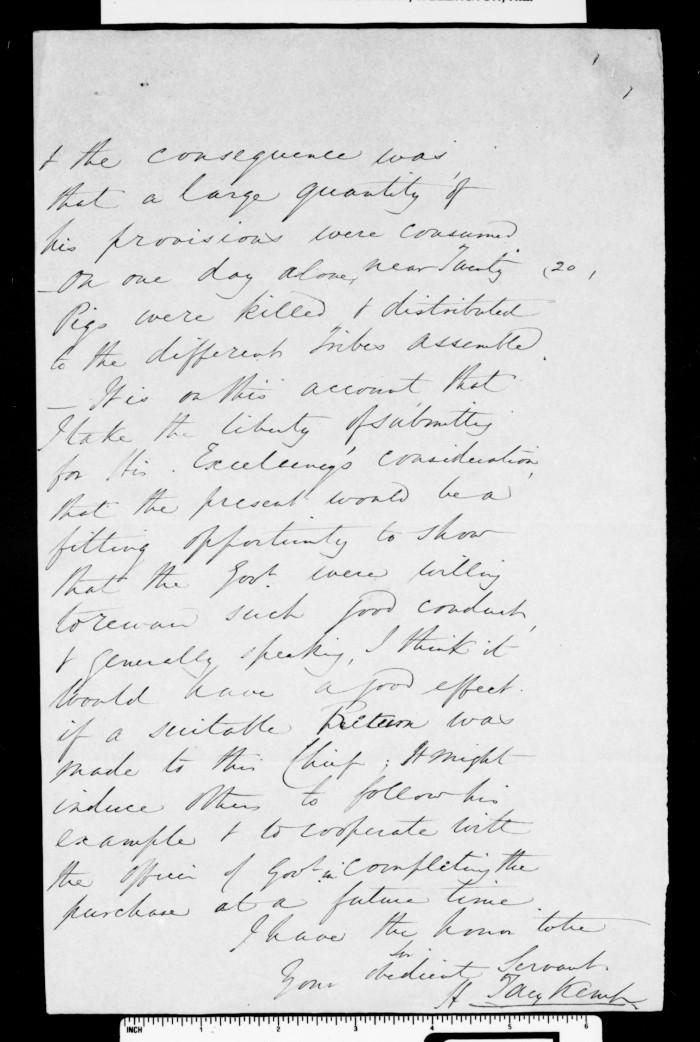 & the consequence was
that a large quantity of
his provisions were consumed
- On one day alone, near Twenty (20,
Pigs were killed & distributed
to the different Tribes assemble.
- It is on this account, that
I take the liberty of submitting
for His Excellency's consideration,
that the present would be a
fitting opportunity to show
that the Govt. were willing
to rewar such good conduct,
& generally speaking, I think it
would have a good effect.
if a suitable Return was
made to this Chief; It might
induce others to follow his
example & to cooperate with
the Officer of Govt. in completing the
purchase at a future time.
I have the honor to be
Sir
Your obedient Servant.
H Tacy Kemp
INCH 1 2 3 4 5 6